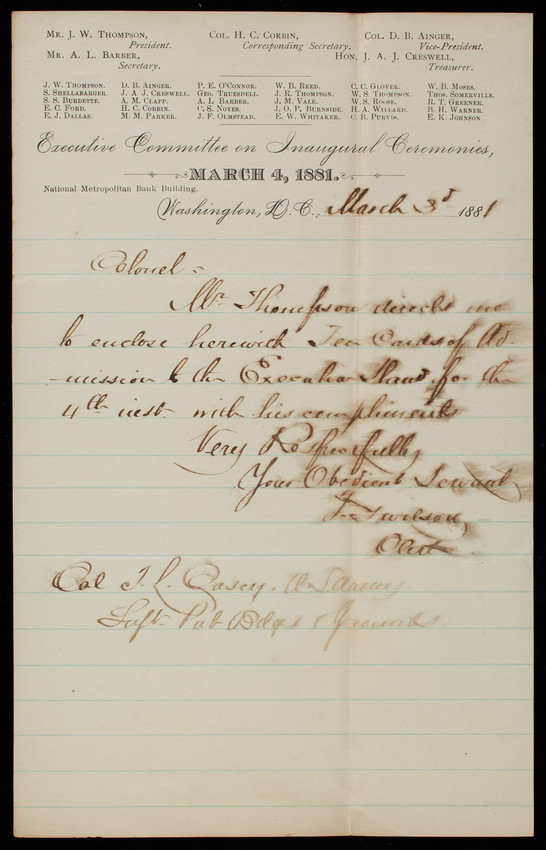 Mr. J. W. Thompson, Col. H. C. Corbin, Col. D. B. Ainger,
President. Corresponding Secretary. Vice-President.
Mr. A. L. Barber, Hon. J. A. J. Creswell,
Secretary. Treasurer.
J. W. Thompson. D. B. Ainger. P. E. O'Connor. W. B. Reed. C. C. Glover. W. B. Moses.
S. Shellabarger. J. A. J. Creswell. Geo. Truesdell. J. R. Thompson. W. S. Thompson. Thos. Somerville.
S. S. Burdette. A. M. Clapp. A. L. Barber. J. M. Vale. W. S. Roose. R. T. Greener.
E. C. Ford. H. C. Corbin. C. S. Noyes. J. O. P. Burnside. H. A. Willard. B. H. Warner.
E. J. Dallas. M. M. Parker. J. F. Olmstead. E. W. Whitaker. C. B. Purvis. E. K. Johnson
Executive Committee on Inaugural Ceremonies,
MARCH 4, 1881.
National Metropolitan Bank Building.
Washington, D. C., March 3d 1881
Colonel -
Mr. Thompson directs me
to enclose herewith Ten Cards of Ad-
-mission to the Executive Stand for the
4th inst. with his compliments
Very Respectfully
Your Obedient Servant
Clerk
Col T. L. Casey. U S Army.
Supt. Pub Bdgs & Grounds.